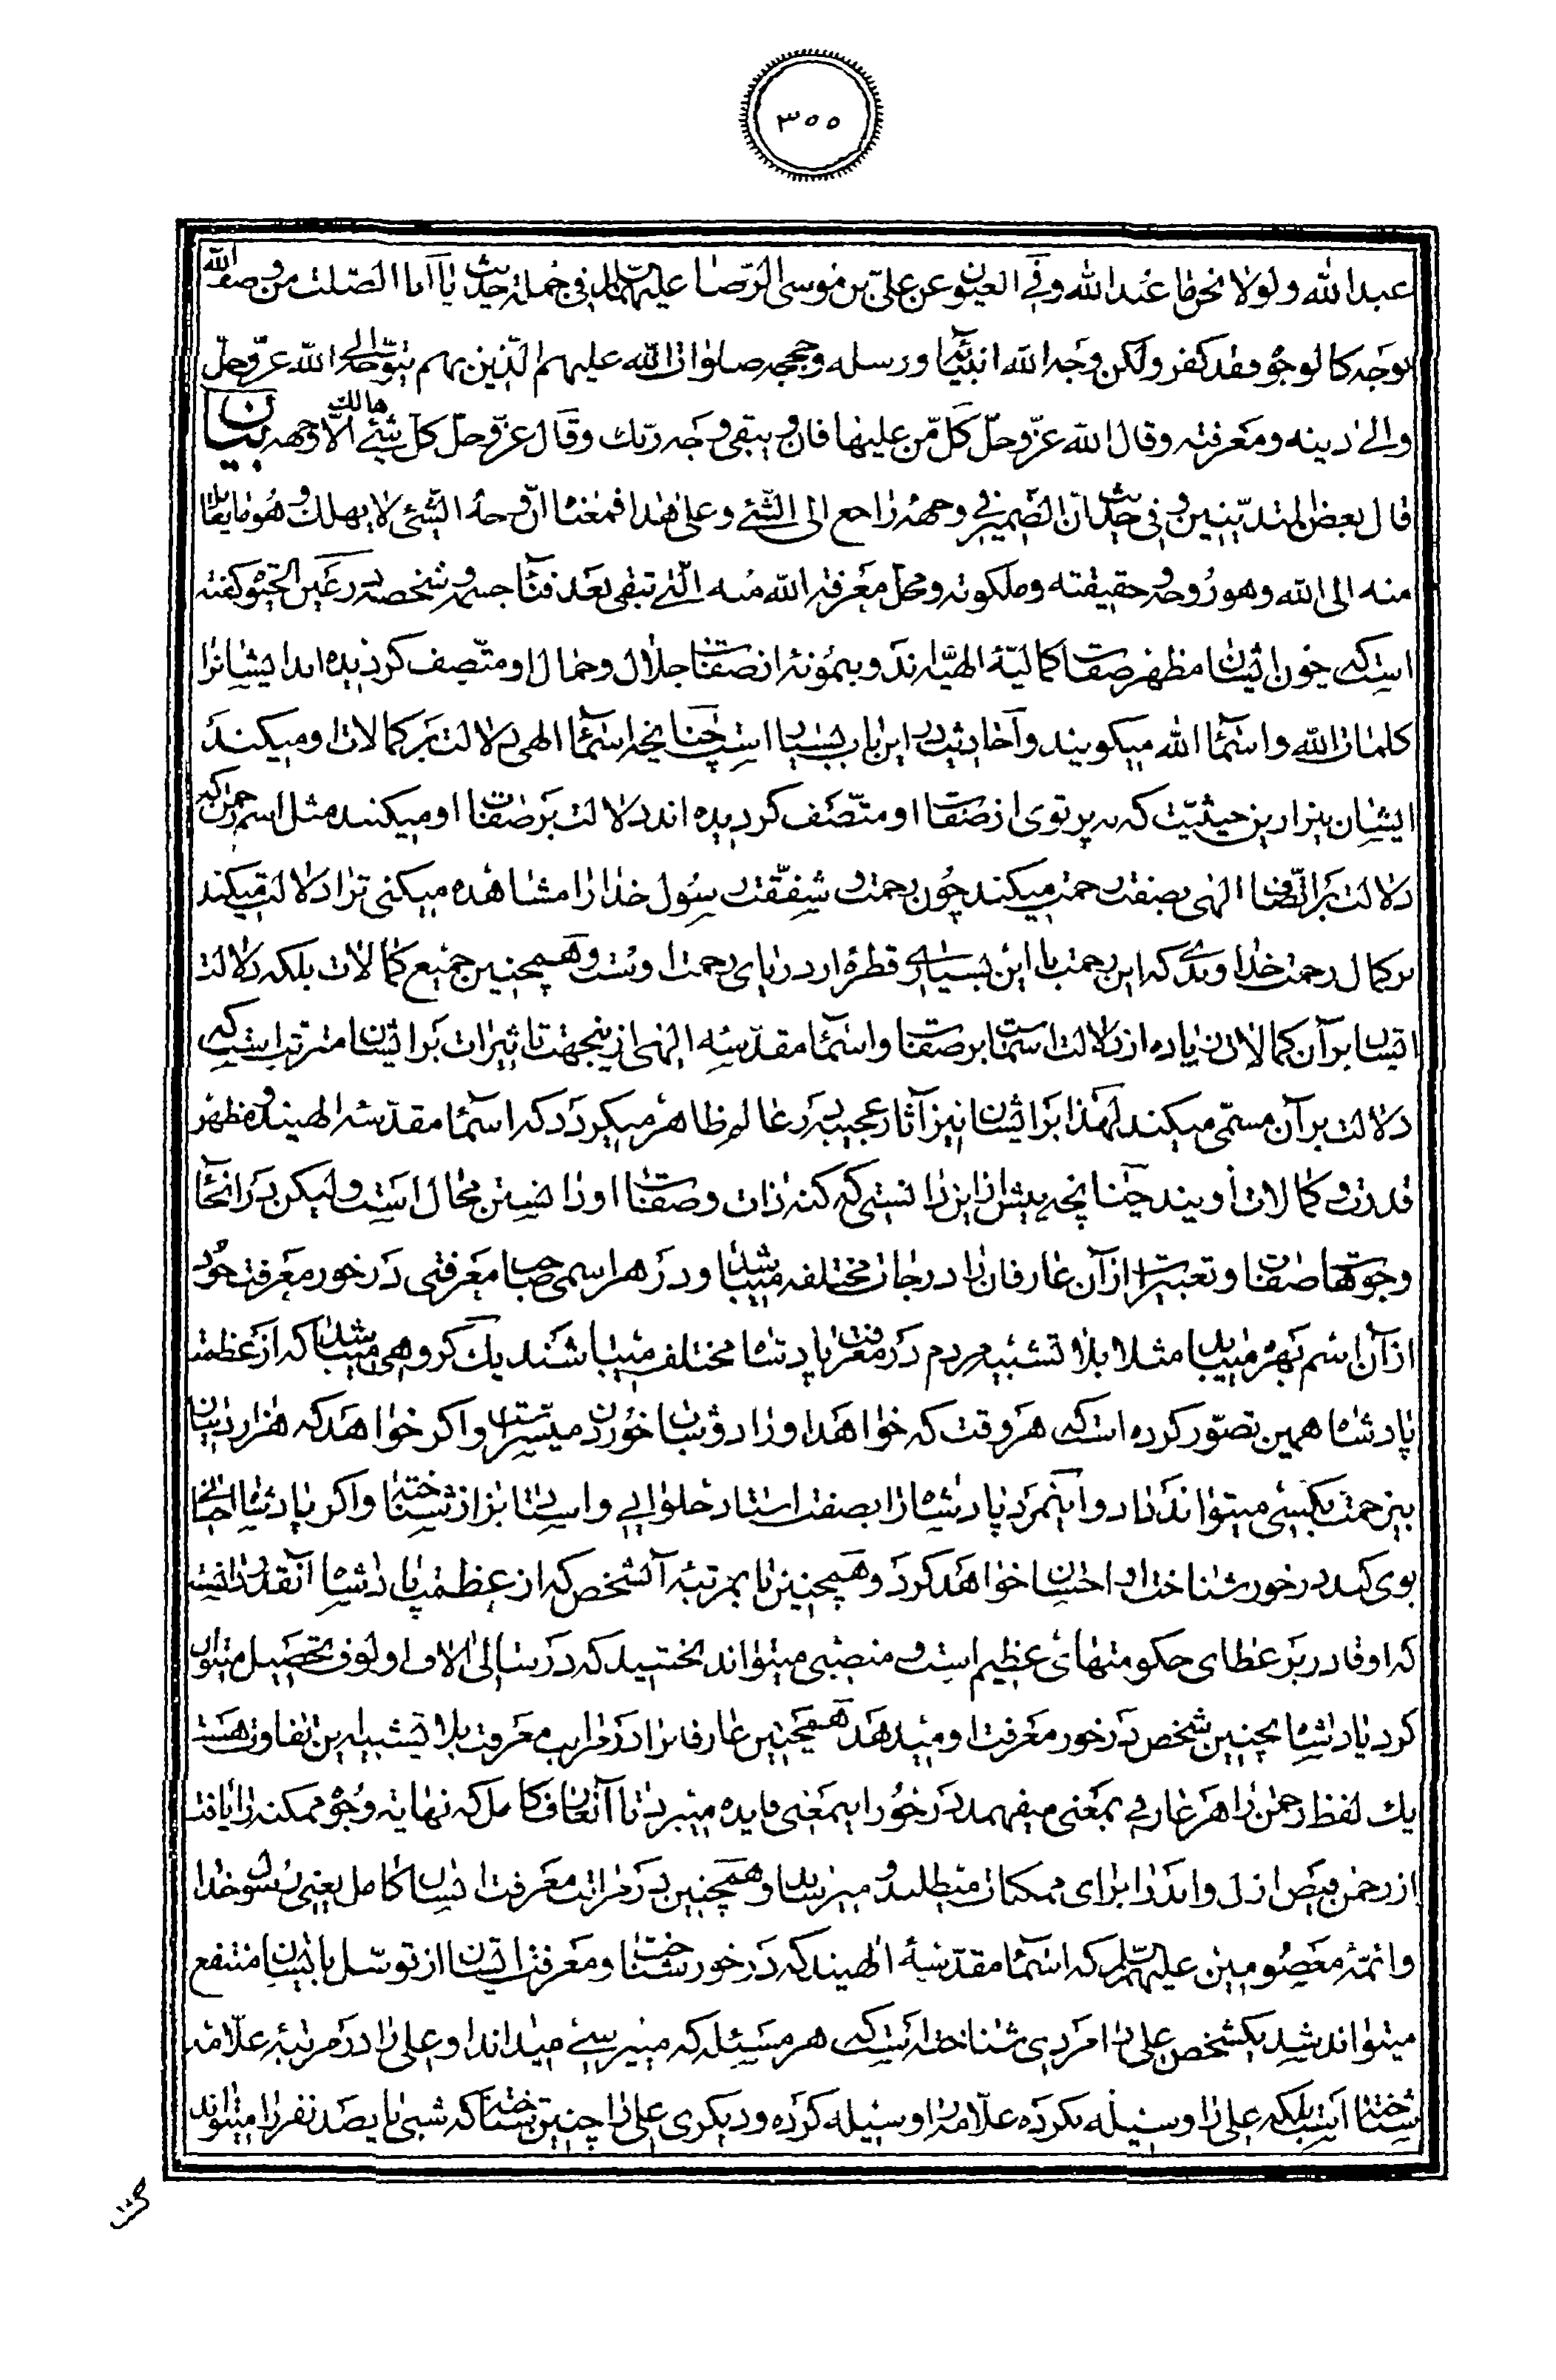 ٣٥٥
عبد الله ولولا نحن ما عبد الله وفي العيون عن علي بن موسى الرضا عليهما السلام في جملة حديث يا أبا الصلت من وصف الله
بوجه كالوجوه فقد كفر ولكن وجه الله انبيائه ورسله وحججه صلوات الله عليهم الذين بهم يتوجه الى الله عز وجل
والى دينه ومعرفته وقال الله عز وجل كل من عليها فان ويبقى وجه ربك وقال عز وجل كل شيء هالك الا وجهه بيان
قال بعض المتدينين وفي حديث ان الضمير في وجهه راجع الى الشيء وعلى هذا فمعناه ان وجه الشيء لا يهلك وهو ما يقابل
منه الى الله وهو روحه وحقيقته وملكوته ومحل معرفة الله منه التي تبقى بعد فناء جسمه وشخصه در عين الحيوة گفته
است که چون ایشان مظهر صفات کمالیۀ الهیه اند و بنمونۀ از صفات جلال و جمال او متصف گردیده اند ایشانرا
کلمات الله و اسماء الله میگویند و احادیث در این باب بسیار است چنانچه اسماء الهی دلالت بر کمالات او میکنند
ایشان نیز از این حیثیت که به پرتوی از صفات او متصف گردیده اند دلالت بر صفات او میکنند مثل اسم رحمن که
دلالت بر اتصاف الهی بصفت رحمت میکند چون رحمت و شفقت رسول خدا را مشاهده میکنی ترا دلالت میکند
بر کمال رحمت خداوندی که این رحمت با این بسیاری قطرۀ از دریای رحمت اوست و همچنین جمیع کمالات بلکه دلالت
ایشان بر آن کمالات زیاده از دلالت اسماست بر صفات و اسماء مقدسه الهی از ینجهت تاثیرات بر ایشان مترتب است که
دلالت بر آن مسمی میکند لهذا بر ایشان نیز آثار عجیبه در عالم ظاهر میگردد که اسماء مقدسه الهیند و مظهر
قدرت و کمالات اویند چنانچه پیش از این دانستی که کنه ذات و صفات او دانستن محال است ولیکن در انحاء
وجوهات صفات و تعبیرات از آن عارفان را درجات مختلفه میباشد و در هر اسمی صاحب معرفتی در خور معرفت خود
از آن اسم بهره مییابد مثلا بلا تشبیه مردم در معرفت پادشاه مختلف میباشند یک گروهی میباشد که از عظمت
پادشاه همین تصور کرده است که هر وقت که خواهد او را دوشاب خوردن میسر است و اگر خواهد که هزار دینار
بیزحمت بکسی میتواند داد و اینمرد پادشاه را بصفت استاد حلوایی و استاد بزاز شناخته و اگر پادشاه احسانی
بوی کند در خور شناخت او احسان خواهد کرد و همچنین تا بمرتبۀ آنشخص که از عظمت پادشاه آنقدر دانسته
که او قادر بر عطای حکومتهای عظیم است و منصبی میتواند بخشید که در سالی الاف الوف تحصیل میتوان
کرد پادشاه بچنین شخص در خور معرفت او میدهد همچنین عارفانرا در مراتب معرفت بلا تشبیه این تفاوت هست
یک لفظ رحمن را هر عارفی بمعنی میفهمد در خور اینمعنی فایده میبرد تا آنعارف کامل که نهایة وجوه ممکنه را یافته
از رحمن فیض ازل و ابد را برای ممکنات میطلبد و میرساند و همچنین در مراتب معرفت انسان کامل یعنی رسول خدا
و ائمۀ معصومین علیهم السلام که اسماء مقدسۀ الهیند که در خور شناخت و معرفت ایشان از توسل بایشان منتفع
میتواند شد یکشخص علی را مردی شناخته است که هر مسئله که میپرسی میداند او علی را در مرتبۀ علامه
شناخته است بلکه علی را وسیله نکرده علامه را وسیله کرده و دیگری علی را چنین شناخته که شبی پانصد نفر را میتواند